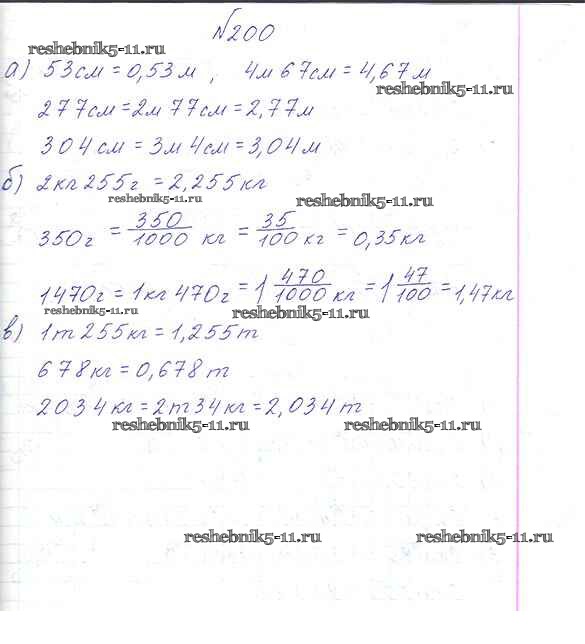 №200
reshebnik5-11.ru
а) 53см = 0,53м, 4м 67см = 4,67м
reshebnik5-11.ru
277см = 2м 77см = 2,77м
304см = 3м 4см = 3,04м
б) 2кг 255г = 2,255кг
reshebnik5-11.ru reshebnik5-11.ru
350г = 350/1000 кг = 35/100 кг = 0,35кг
1470г = 1кг 470г = 1 470/1000 кг = 1 47/100 = 1,47кг
reshebnik5-11.ru reshebnik5-11.ru
в) 1т 255кг = 1,255т
678кг = 0,678т
2034кг = 2т 34кг = 2,034т
reshebnik5-11.ru reshebnik5-11.ru
reshebnik5-11.ru reshebnik5-11.ru